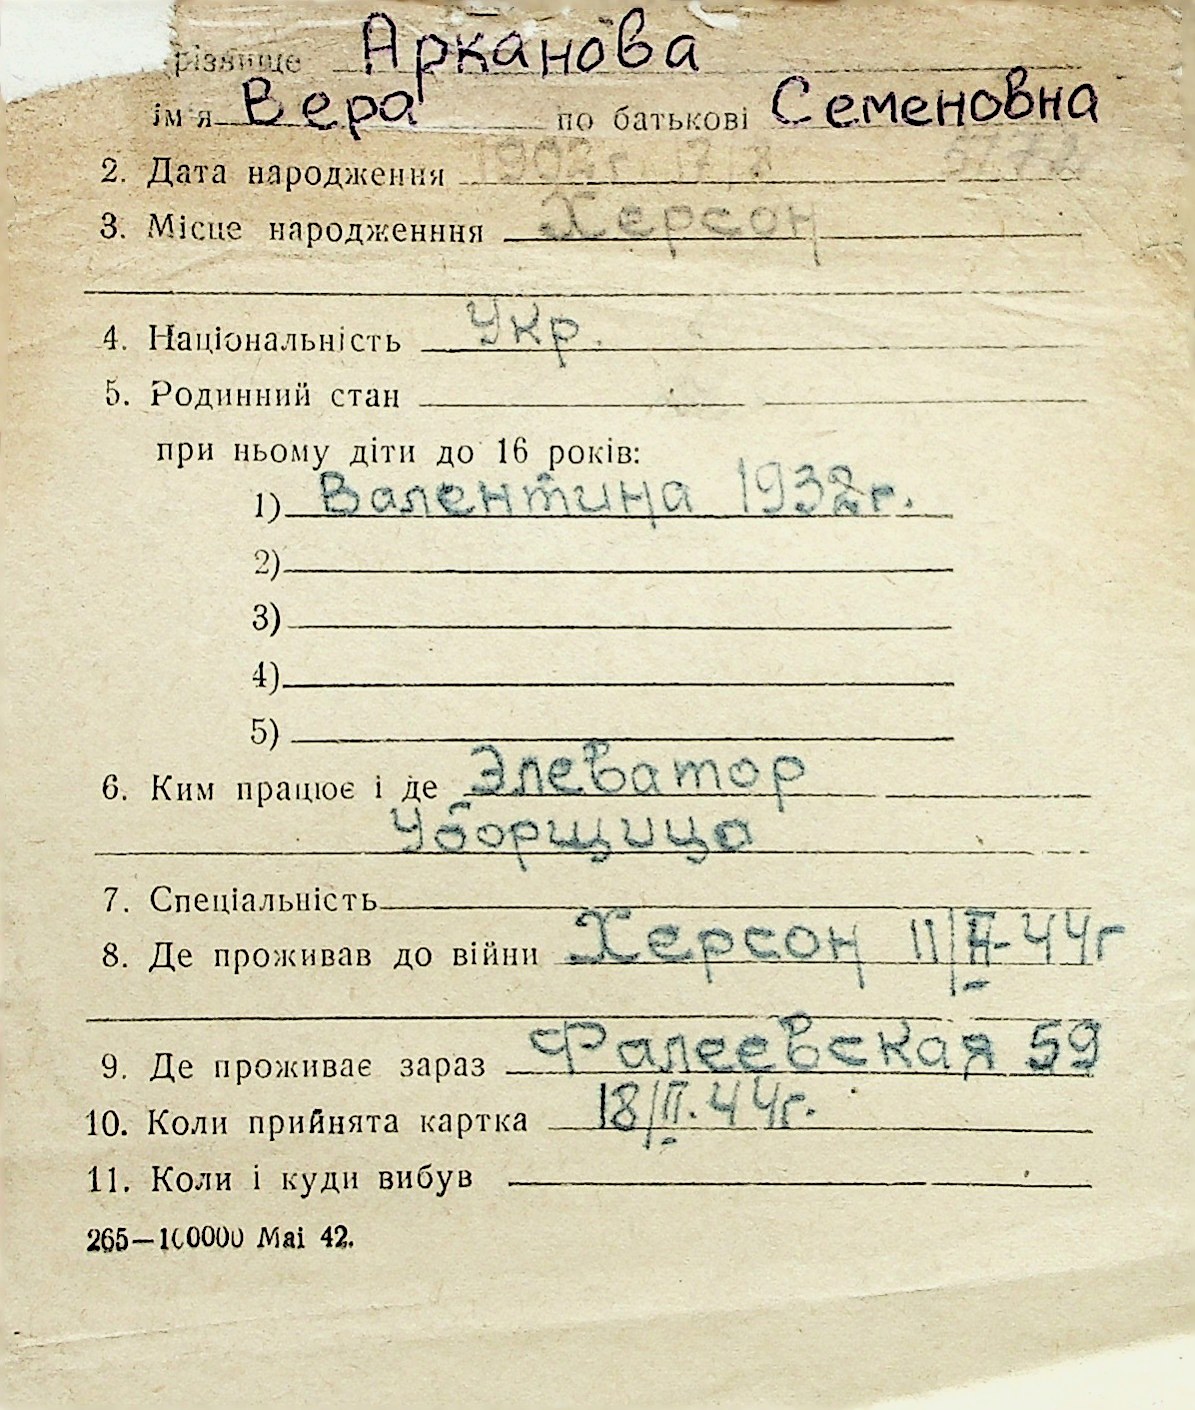 різвище Арканова
ім'я Вера по батькові Семеновна
2. Дата народження 1902 г. 17/8
3. Місце народженння Херсон
4. Національність Укр.
5. Родинний стан
при ньому діти до 16 років:
1) Валентина 1932 г.
2)
3)
4)
5)
6. Ким працює і де Элеватор
Уборщица
7. Спеціальність
8. Де проживав до війни Херсон 11/II-44г
9. Де проживає зараз Фалеевская 59
10. Коли прийнята картка 18/II.44г.
11. Коли і куди вибув
265—100000 Mai 42.